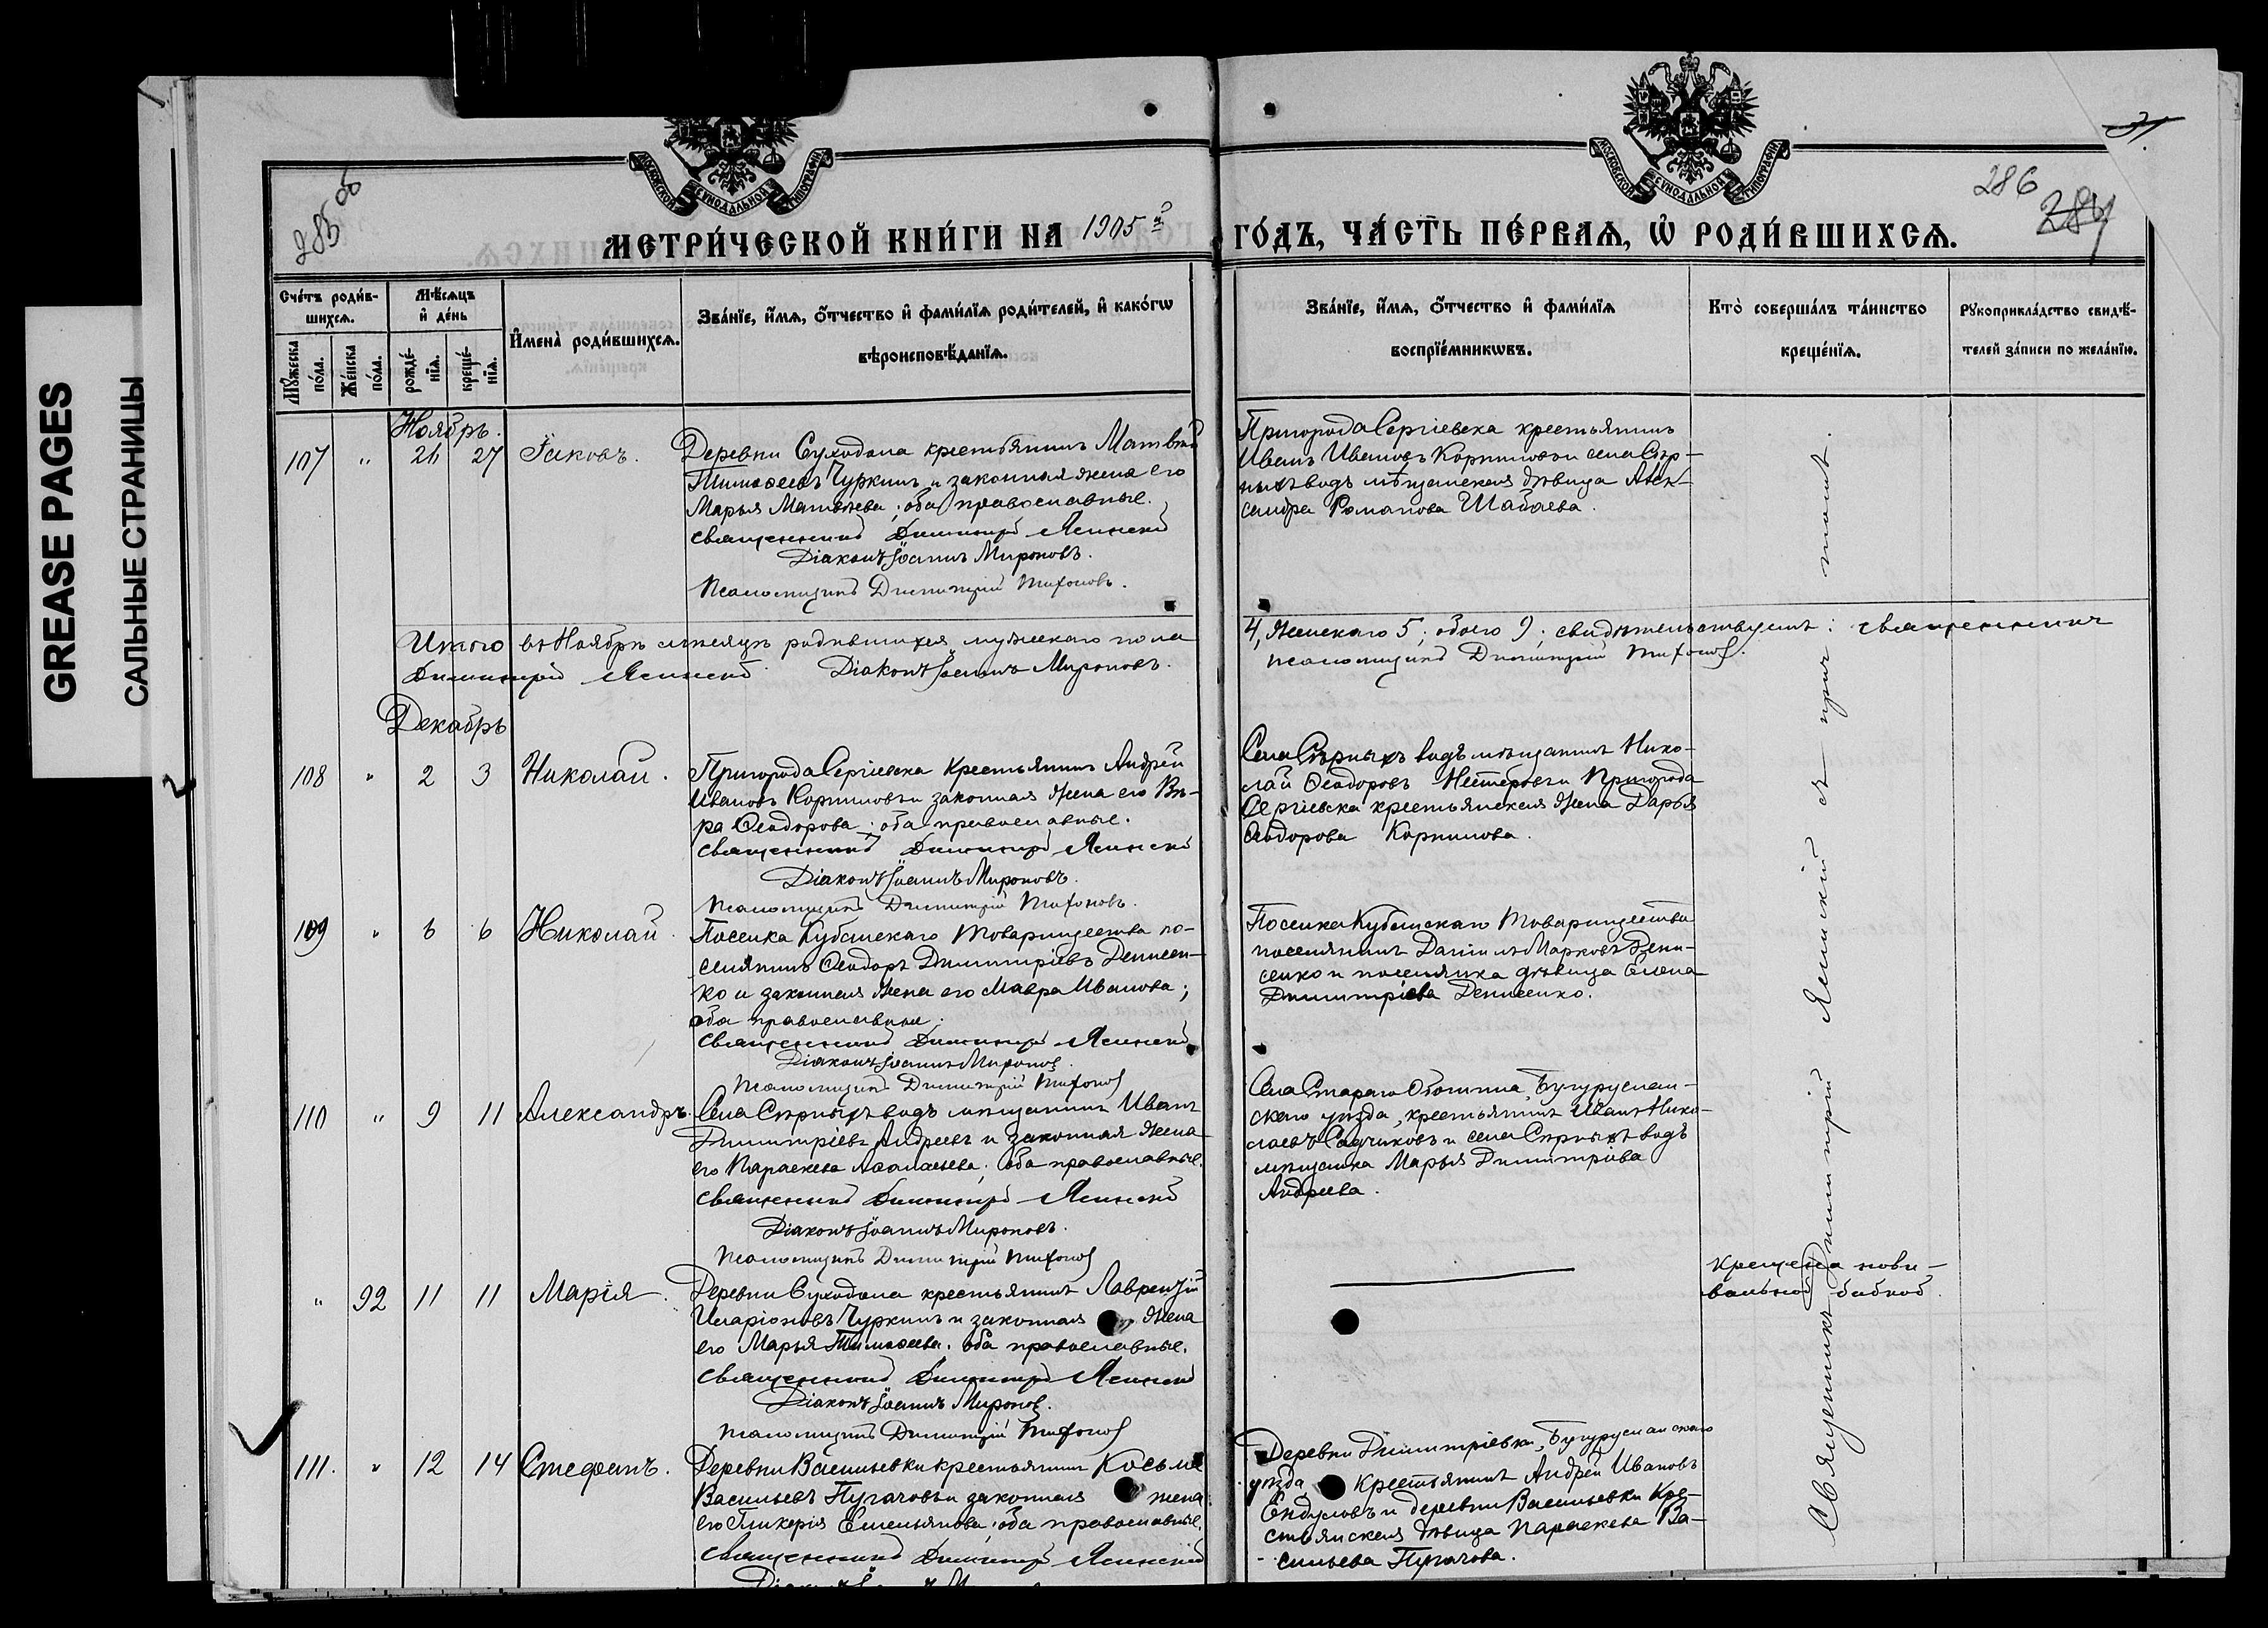 GREASE PAGES
САЛЬНЫЕ СТРАНИЦЫ
МОСКОВСКОЙ СѴНОДАЛЬНОЙ ТИПОГРАФІИ
МОСКОВСКОЙ СѴНОДАЛЬНОЙ ТИПОГРАФІИ
285 об
286
МЕТРИ́ЧЕСКОЙ КНИ́ГИ НА 1905 й ГО́ДЪ, ЧА́СТЬ ПЕ́РВАѦ, Ѡ РОДИ́ВШИХСѦ.
Сче́тъ роди́в-
шихсѧ.
Мꙋ́жеска по́ла.
Же́нска по́ла.
Мѣ́сѧцъ
и де́нь
рожде́-
нїѧ.
креще́-
нїѧ.
И҆мена̀ роди́вшихсѧ.
Зва́нїе, и҆́мѧ, ѻ҆́тчество и҆ фами́лїѧ роди́телей, и҆ како́гѡ
вѣроисповѣ́данїѧ.
Зва́нїе, и҆́мѧ, ѻ҆́тчество и҆ фами́лїѧ
воспрїе́мникѡвъ.
Кто̀ соверша́лъ та́инство
креще́нїѧ.
Рꙋкоприкла́дство свидѣ́-
телей за́писи по жела́нїю.
Ноябрь.
107 " 26 27 Іаковъ.
Деревни Суходола крестьянинъ Матвѣй
Тимоѳеевъ Чуркинъ и законная жена его
Марья Матвѣева; оба православные.
Священникъ Димитрій Ясинскій
Діаконъ Іоаннъ Мироновъ.
Псаломщикъ Димитрій Тихоновъ.
Пригорода Сергіевска крестьянинъ
Иванъ Ивановъ Корниловъ и села Сѣр-
ныхъ водъ мѣщанская дѣвица Алек-
сандра Романова Шабаева.
Итого въ Ноябрѣ мѣсяцѣ родившихся мужескаго пола
4, Женскаго 5; обоего 9; свидѣтельствуемъ: священникъ
Димитрій Ясинскій Діаконъ Іоаннъ Мироновъ.
псаломщикъ Димитрій Тихоновъ.
Декабрь
108 " 2 3 Николай.
Пригорода Сергіевска Крестьянинъ Андрей
Ивановъ Корниловъ и законная жена его Вѣ-
ра Ѳеодорова; оба православные.
Священникъ Димитрій Ясинскій
Діаконъ Іоаннъ Мироновъ.
Псаломщикъ Димитрій Тихоновъ.
Села Сѣрныхъ водъ мѣщанинъ Нико-
лай Ѳеодоровъ Нестеровъ и Пригорода
Сергіевска крестьянская жена Дарья
Ѳеодорова Корнилова.
109 " 6 6 Николай.
Поселка Кубанскаго Товарищества по-
селянинъ Ѳеодоръ Димитріевъ Денисен-
ко и законная жена его Мавра Иванова;
оба православные.
Священникъ Димитрій Ясинскій
Діаконъ Іоаннъ Мироновъ
Псаломщикъ Димитрій Тихоновъ
Поселка Кубанскаго Товарищества
поселянинъ Даніилъ Марковъ Дени-
сенко и поселянка дѣвица Елена
Димитріева Денисенко.
110 " 9 11 Александръ.
Села Сѣрныхъ водъ мѣщанинъ Иванъ
Димитріевъ Андреевъ и законная жена
его Параскева Аѳанасьева; оба православные.
Священникъ Димитрій Ясинскій
Діаконъ Іоаннъ Мироновъ.
Псаломщикъ Димитрій Тихоновъ
Села Стараго Бугуруслан-
скаго уѣзда, крестьянинъ Иванъ Нико-
лаевъ Садчиковъ и села Сѣрныхъ водъ
мѣщанка Марья Димитріева
Андреева.
" 92 11 11 Марія.
Деревни Суходола крестьянинъ Лаврентій
Иларіоновъ Чуркинъ и законная жена
его Марья Тимоѳеева. Оба православные.
Священникъ Димитрій Ясинскій
Діаконъ Іоаннъ Мироновъ.
Псаломщикъ Димитрій Тихоновъ
Крещена пови-
вальной бабкой.
111. " 12 14 Стефанъ.
Деревни Васильевки крестьянинъ Косьма
Васильевъ Пугачовъ и законная жена
его Гликерія Емельянова; оба православные.
Священникъ Димитрій Ясинскій
Деревни Димитріевки, Бугурусланскаго
уѣзда, крестьянинъ Андрей Ивановъ
Ендуловъ и деревни Васильевки Кре-
стьянская дѣвица Параскева Ва-
сильева Пугачова.
Священникъ Димитрій Ясинскій съ причтомъ.